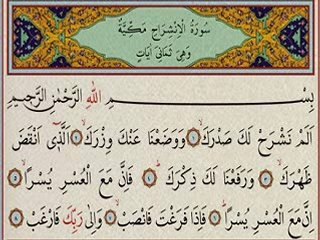 سُورَةُ الْاِنْشِرَاحِ مَكِّيَّةٌ
وَهِيَ ثَمَانِيَ اٰيَاتٍ
بِسْــــمِ اللهِ الرَّحْمٰنِ الرَّحِيمِ
اَلَمْ نَشْرَحْ لَكَ صَدْرَكَ ۙ ﴿١﴾ وَوَضَعْنَا عَنْكَ وِزْرَكَ ۙ ﴿٢﴾ اَلَّذٖٓى اَنْقَضَ
ظَهْرَكَ ۙ ﴿٣﴾ وَرَفَعْنَا لَكَ ذِكْرَكَ ۜ ﴿٤﴾ فَاِنَّ مَعَ الْعُسْرِ يُسْرًا ۙ ﴿٥﴾
اِنَّ مَعَ الْعُسْرِ يُسْرًا ۜ ﴿٦﴾ فَاِذَا فَرَغْتَ فَانْصَبْ ۙ ﴿٧﴾ وَاِلٰى رَبِّكَ فَارْغَبْ ﴿٨﴾